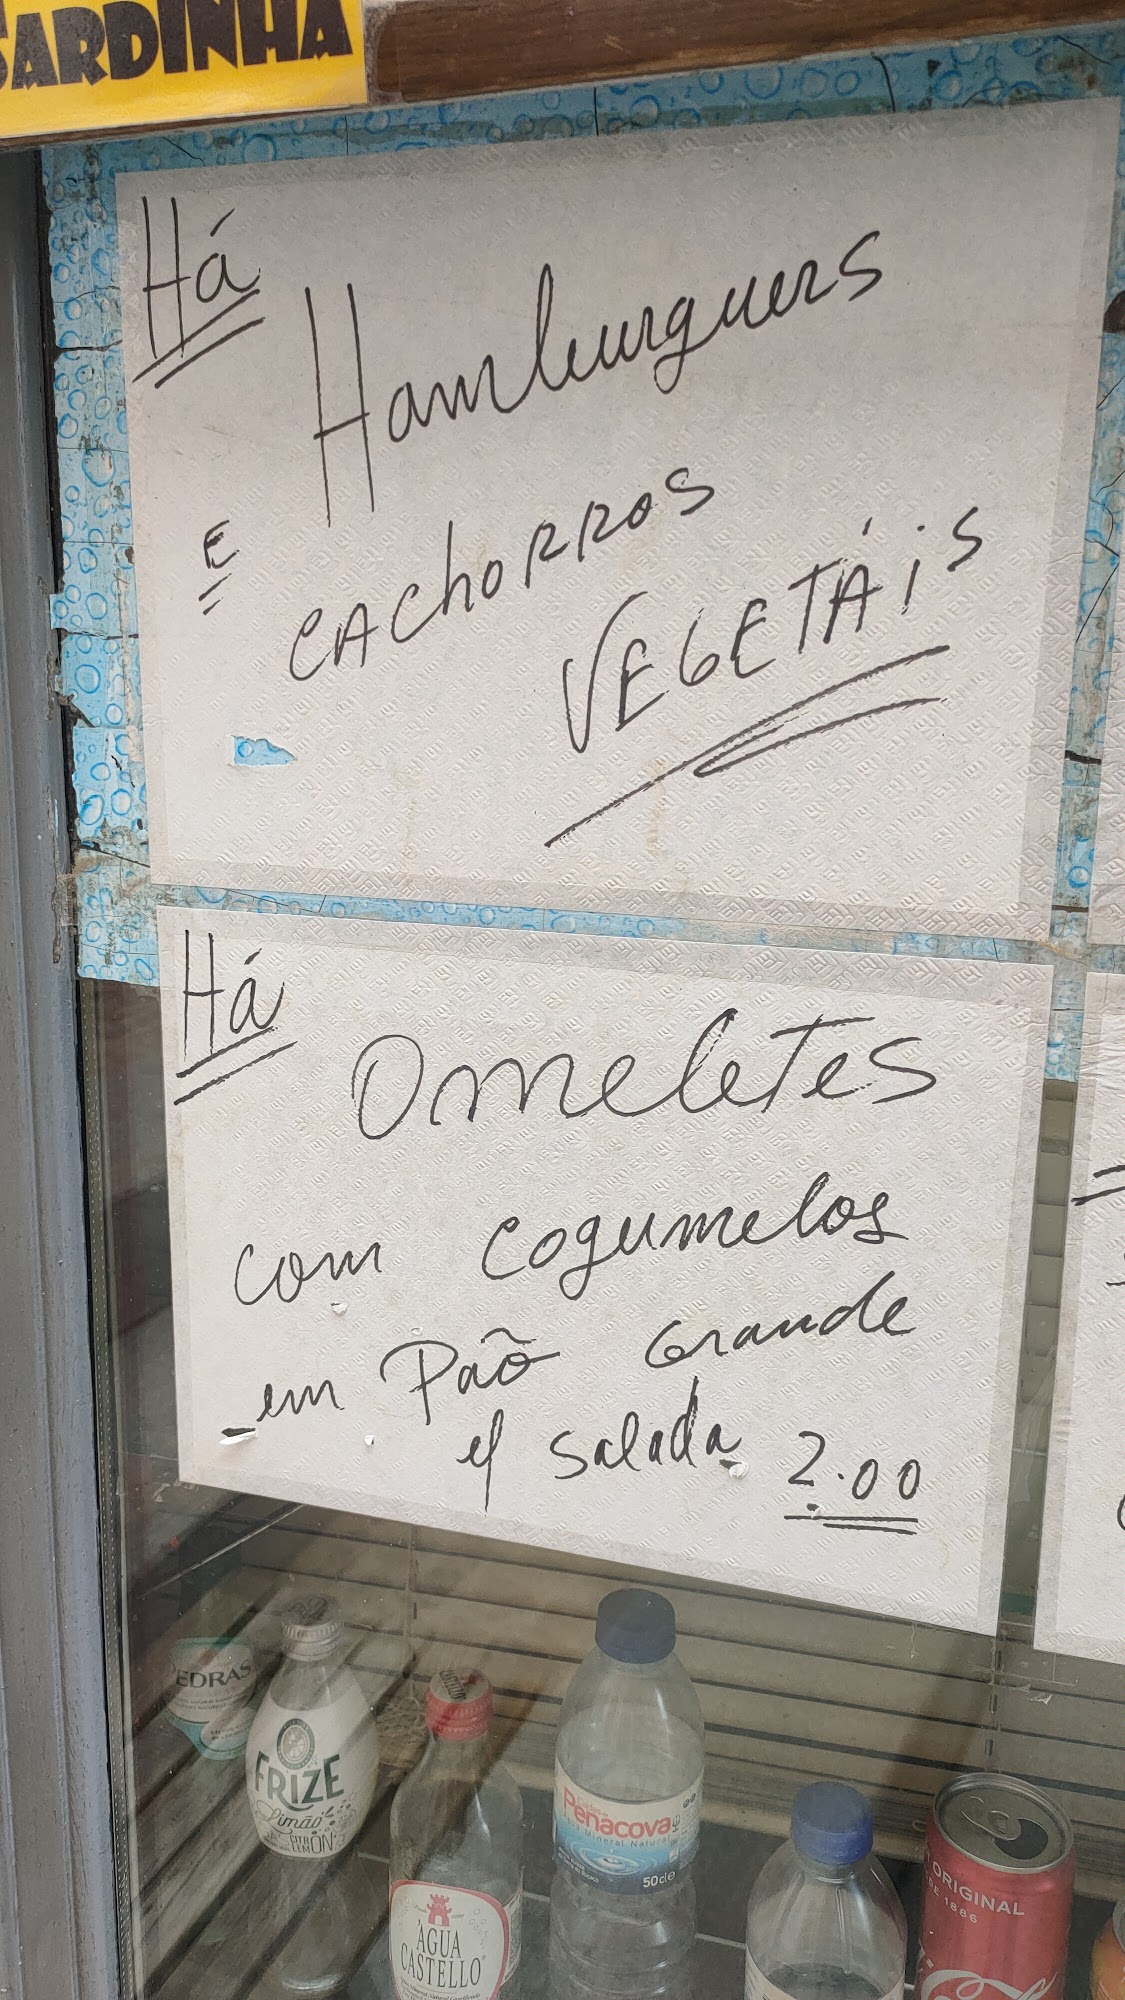 SARDINHA
Há
Hamburguers
E
CAChORROS
VEGETÁiS
Há
OmeleTes
com cogumelos
em Paõ Grande
c/ salada 2.00
PEDRAS
FRIZE
Limão
ÁGUA
CASTELLO
Penacova
Mineral Natural
50cl e
ORIGINAL
1886